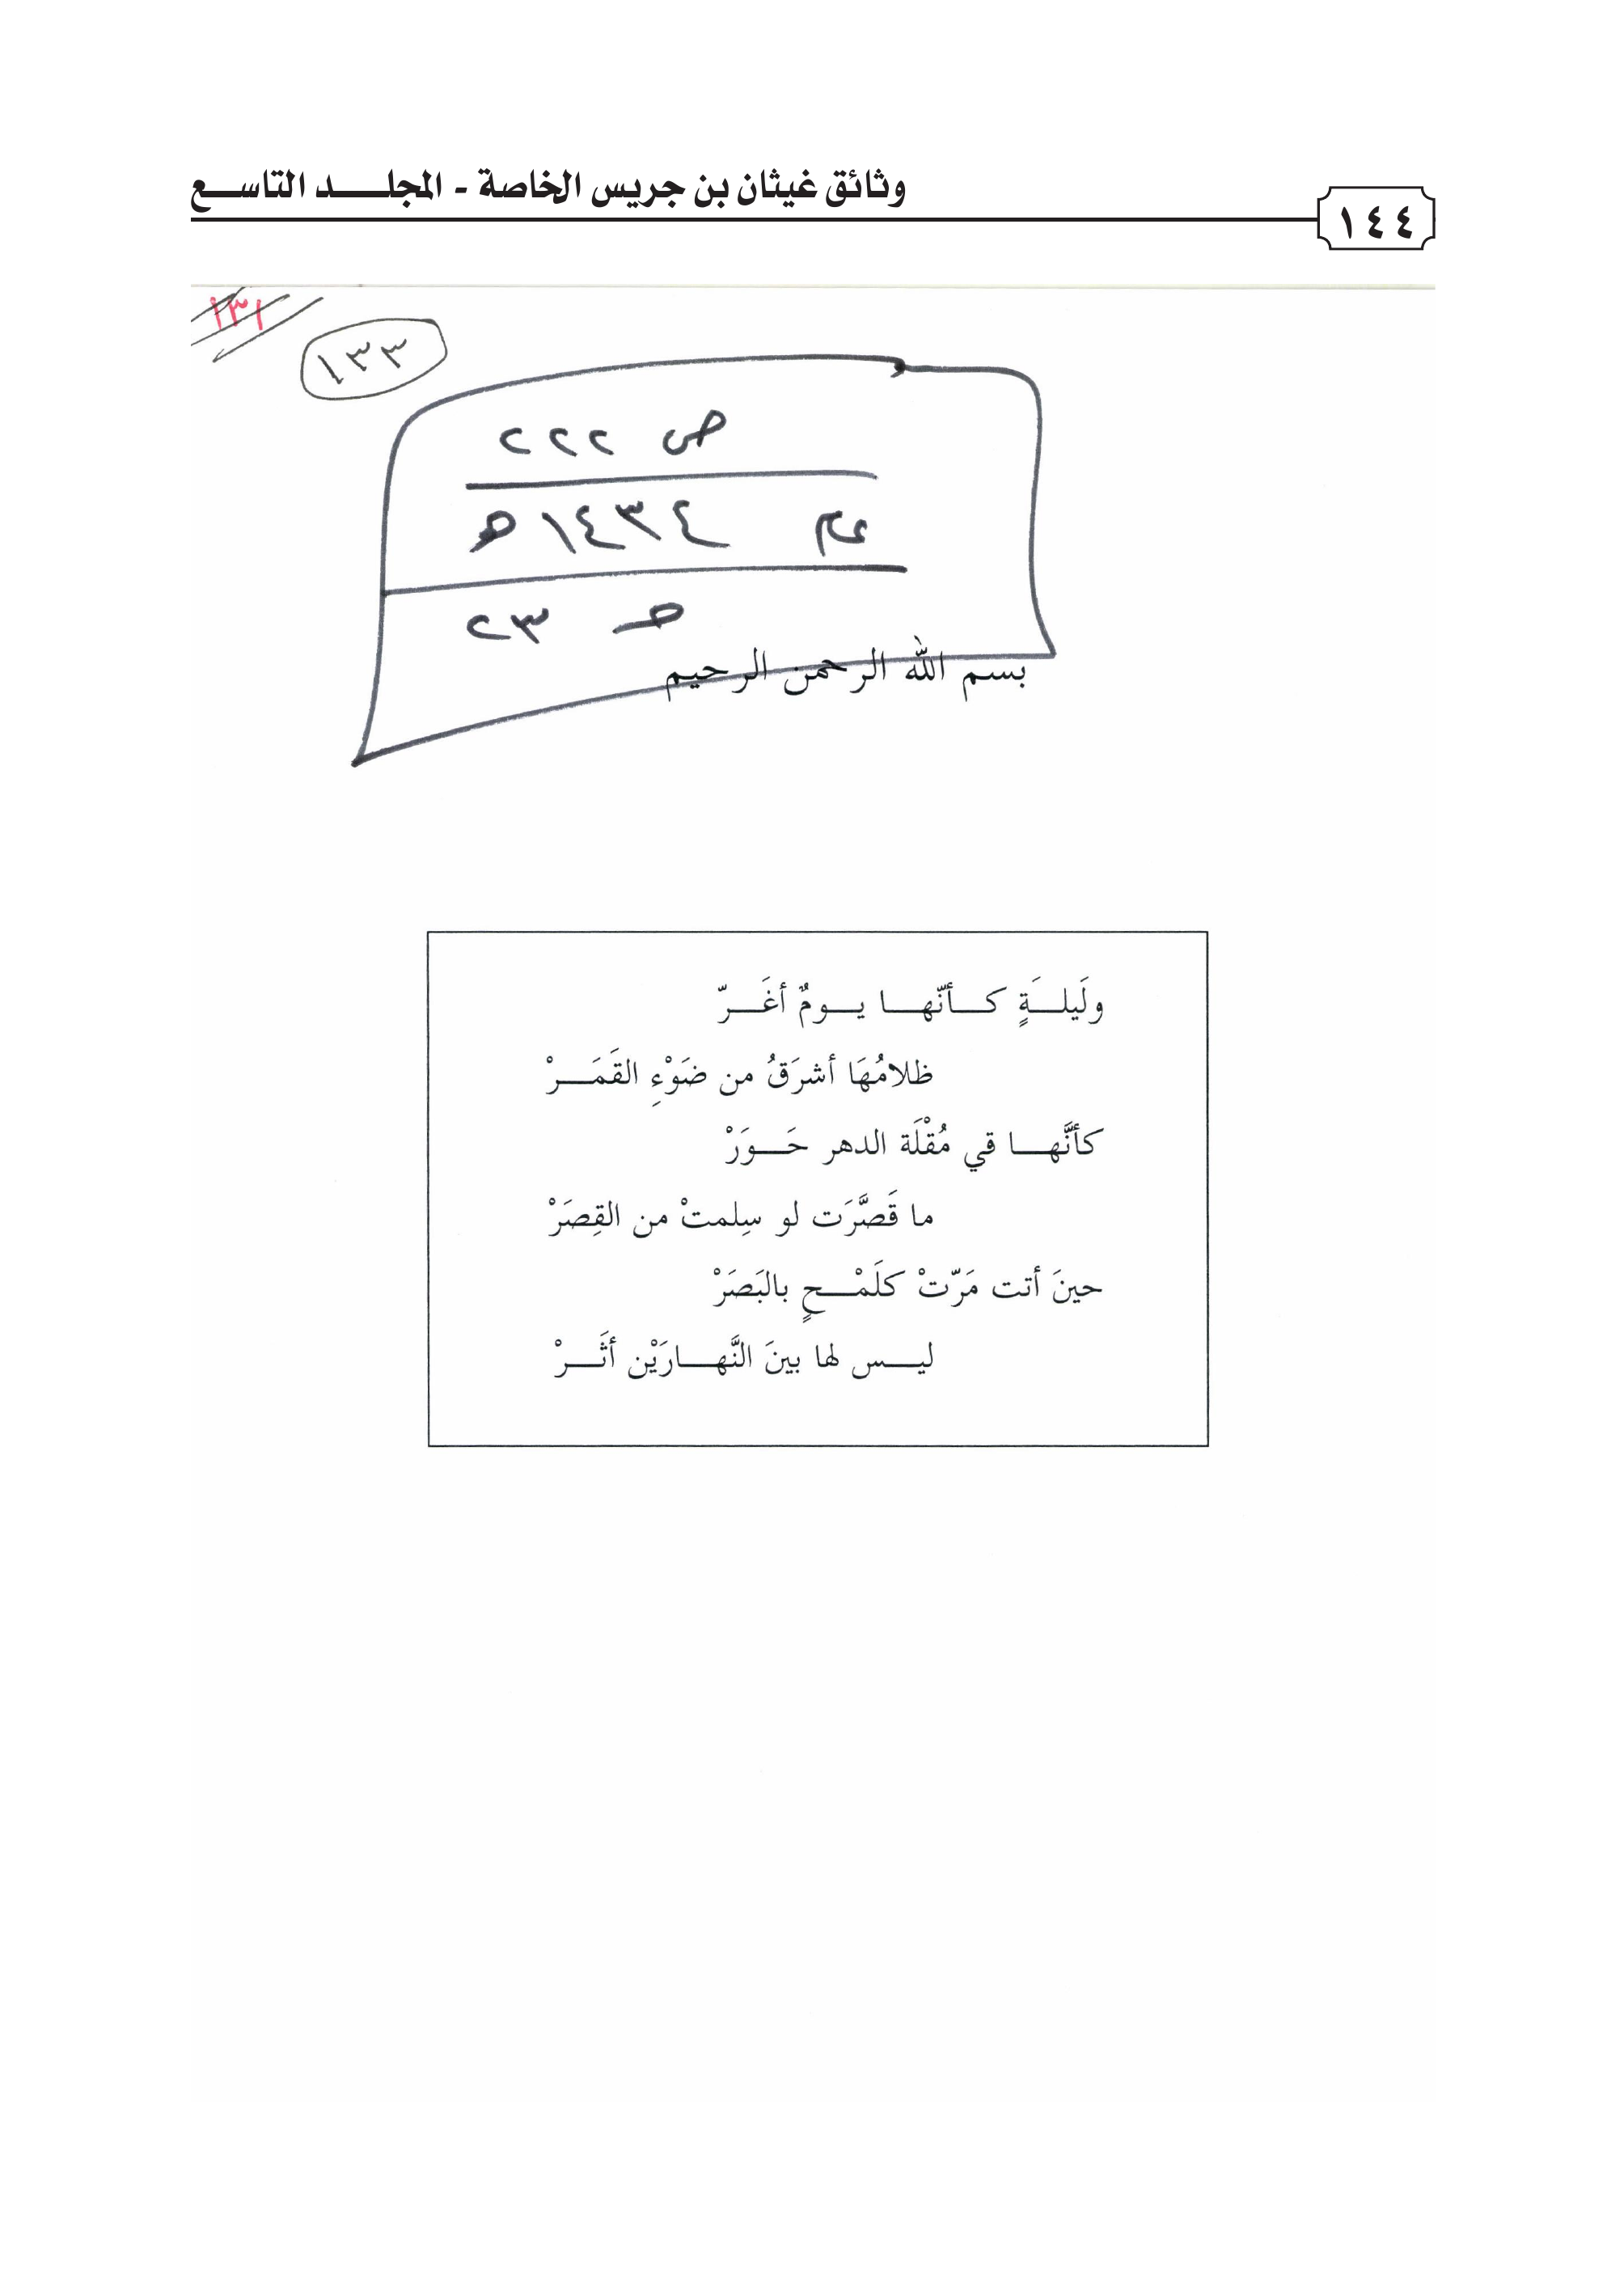 وثائق غيثان بن جريس الخاصة - المجلـــــد التاســـع
١٤٤
١٣١
١٣٣
ص ٢٢٢
عام ١٤٣٤هـ
صـ ٢٣
بسم الله الرحمن الرحيم
ولَيلـــَةٍ كـــأنّهـــا يـــومٌ أغَـــرّ
ظلامُهَا أشرَقُ من ضَوْءِ القَمَـــرْ
كأنَّهـــا قي مُقْلَة الدهر حَـــوَرْ
ما قَصَّرَت لو سِلمتْ من القِصَرْ
حينَ أتت مَرّتْ كلَمْـــحٍ بالبَصَرْ
ليـــس لها بينَ النَّهـــارَيْن أثَـــرْ